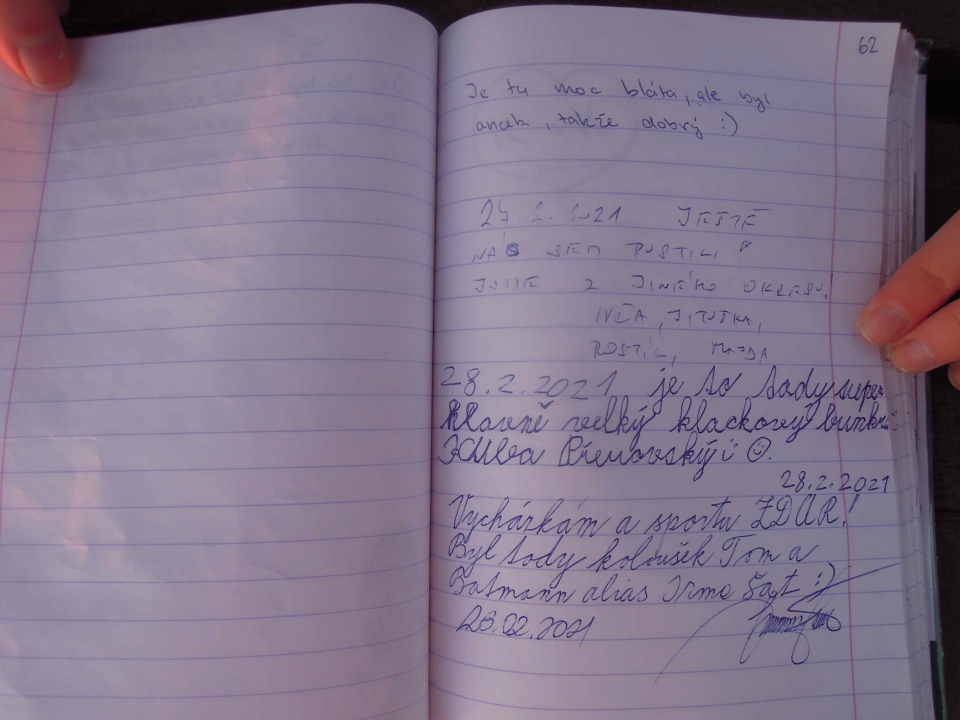 62
Je tu moc bláta, ale byl
ancek, takže dobrý :)
2021 JEŠTĚ
NÁS SEM PUSTILI!
JSME Z JINÉHO OKRESU.
IVČA, JITUŠKA,
ROSTÍK, MAJDA
28.2.2021 je to tady super
hlavně velký klackový bunkr
Kuba :)
28.2.2021
Vycházkám a sportu ZDAR!
Byl tady koloušek Tom a
Batmann alias Irmo Šajt :)
28.02.2021